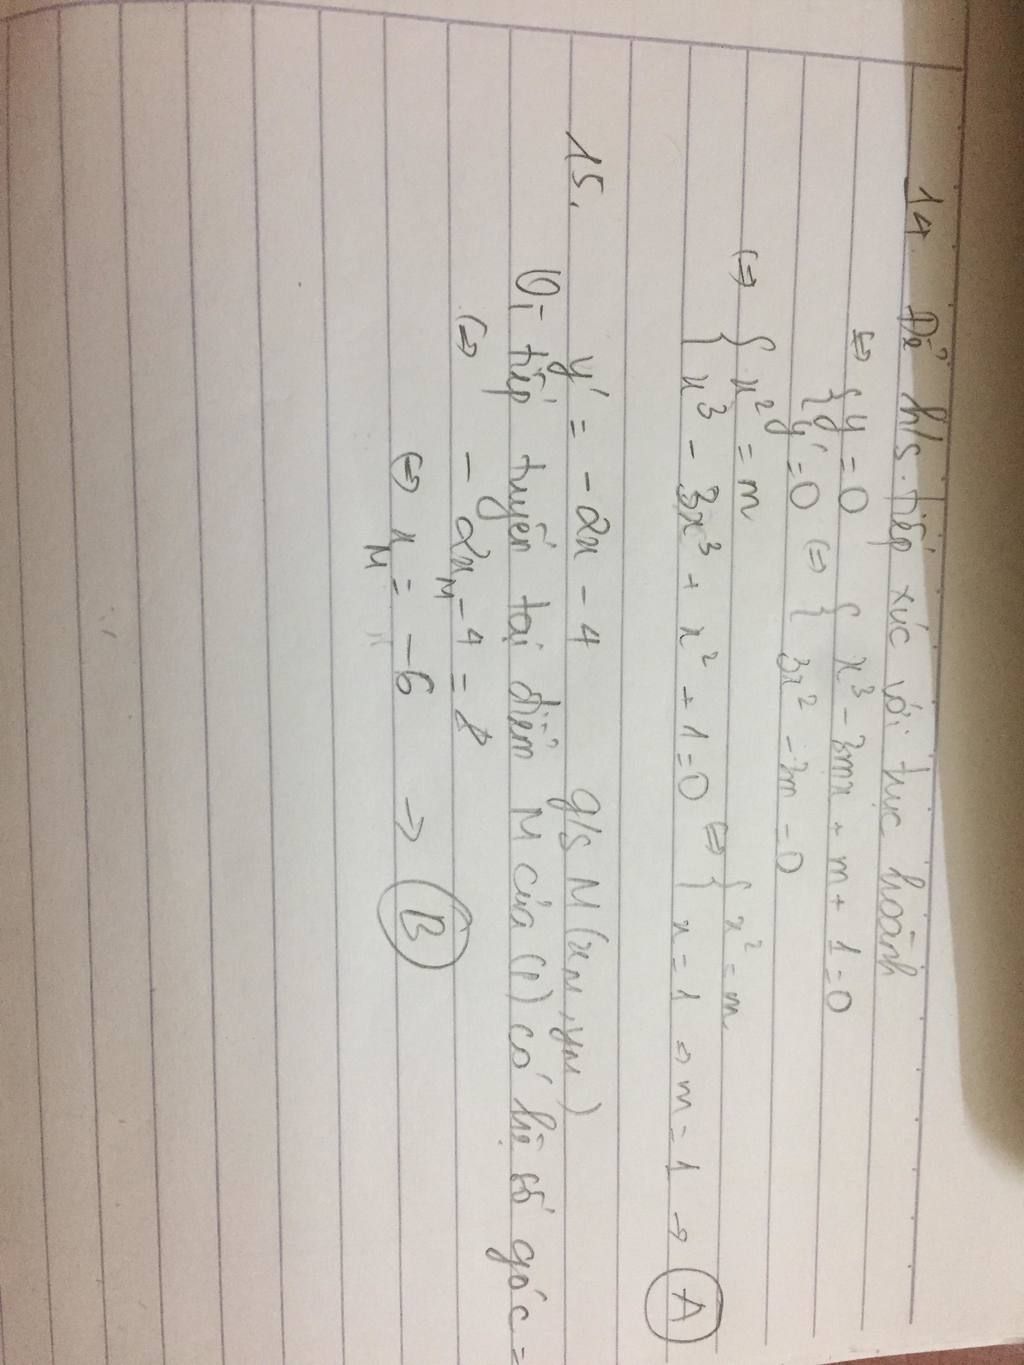 14. Để h/s tiếp xúc với trục hoành
⇔ { y = 0 { x³ - 3mx + m + 1 = 0
{ y' = 0 ⇔ { 3x² - 3m = 0
⇔ { x² = m ⇔ { x² = m
{ x³ - 3x³ + x² + 1 = 0 { x = 1 ⇒ m = 1 → A
15. y' = -2x - 4 g/s M (xM, yM)
Vì tiếp tuyến tại điểm M của (P) có hệ số góc =
⇔ - 2xM - 4 = 8
⇔ xM = -6 → B